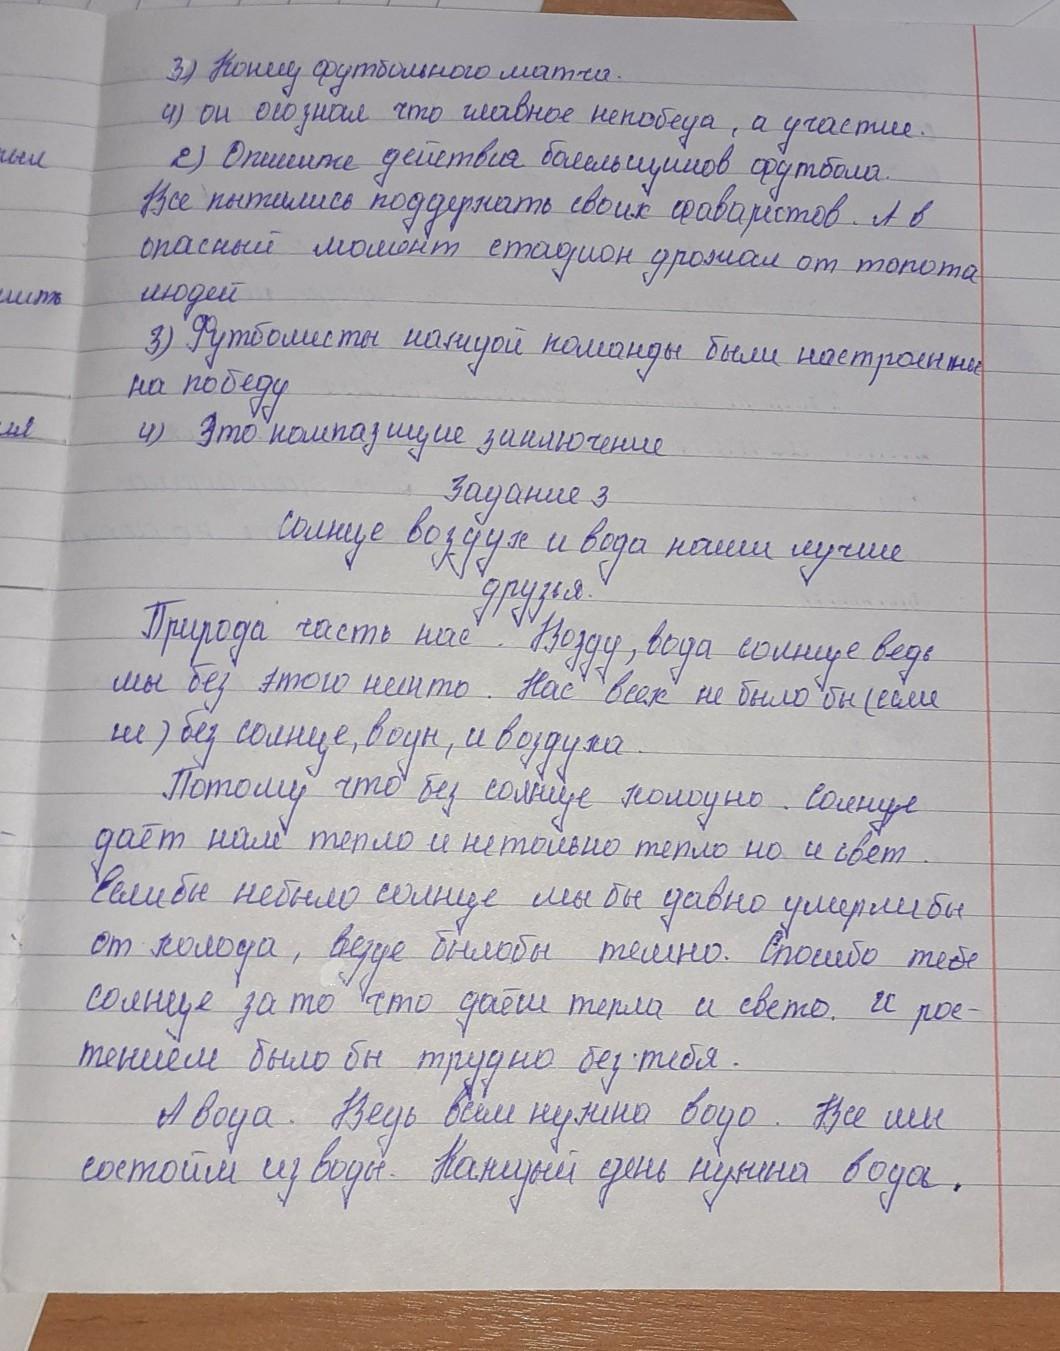 3) Концу футбольного матча.
4) он осознал что главное непобеда, а участие.
2) Опишите действия болельщиков футбола.
Все пытались поддержать своих фаваристов. А в
опасный момент стадион дрожал от топота
людей
3) Футболисты каждой команды были настроенны
на победу
4) Это компазицие заключение
Задание 3
Солнце воздух и вода наши лучшие
друзья.
Природа часть нас. Возду, вода солнце ведь
мы без этого никто. Нас всех не было бы (если
не) без солнце, воды, и воздуха.
Потому что без солнце холодно. Солнце
даёт нам тепло и нетолько тепло но и свет.
Еслибы небыло солнце мы бы давно умерлибы
от холода, везде былобы темно. Спосибо тебе
солнце за то что даёш тепла и свето. И рос-
тением было бы трудно без тебя.
А вода. Ведь всем нужна водо. Все мы
состойм из воды. Каждый день нужна вода.
ных
лить
ия